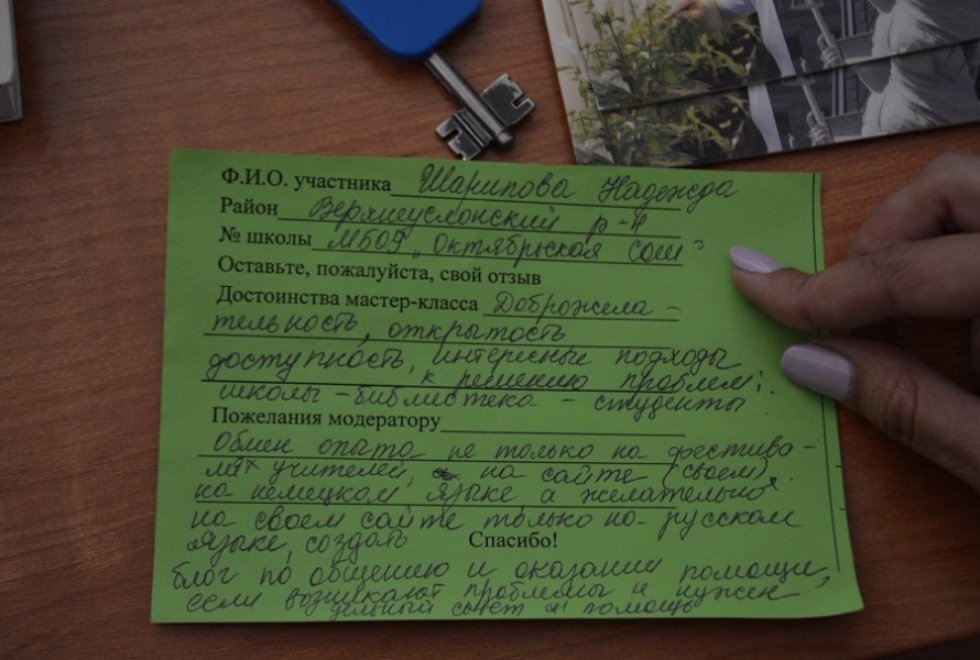 Ф.И.О. участника Шарипова Надежда
Район Верхнеуслонский р-н
№ школы МБОУ „Октябрьская сош"
Оставьте, пожалуйста, свой отзыв
Достоинства мастер-класса Доброжела-
тельность, открытость
доступность, интересные подходы
к решению проблем:
школы-библиотека - студенты!
Пожелания модератору
Обмен опыта не только на фестива-
лях учителей, на сайте (своем),
на немецком языке а желательно
на своем сайте только на русском
языке, создать Спасибо!
блог по общению и оказании помощи,
если возникают проблемы и нужен
дельный совет и помощь